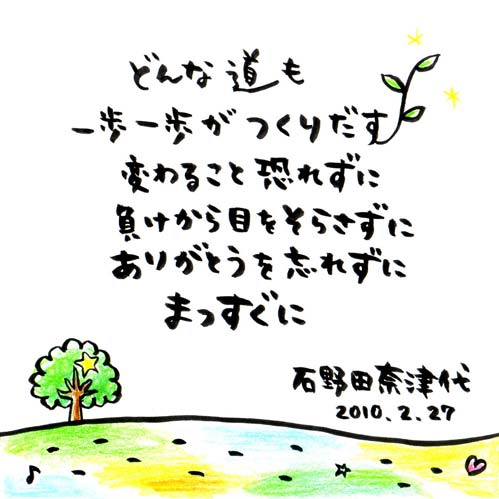 どんな道も
一歩一歩がつくりだす
変わること恐れずに
負けから目をそらさずに
ありがとうを忘れずに
まっすぐに
石野田奈津代
2010.2.27